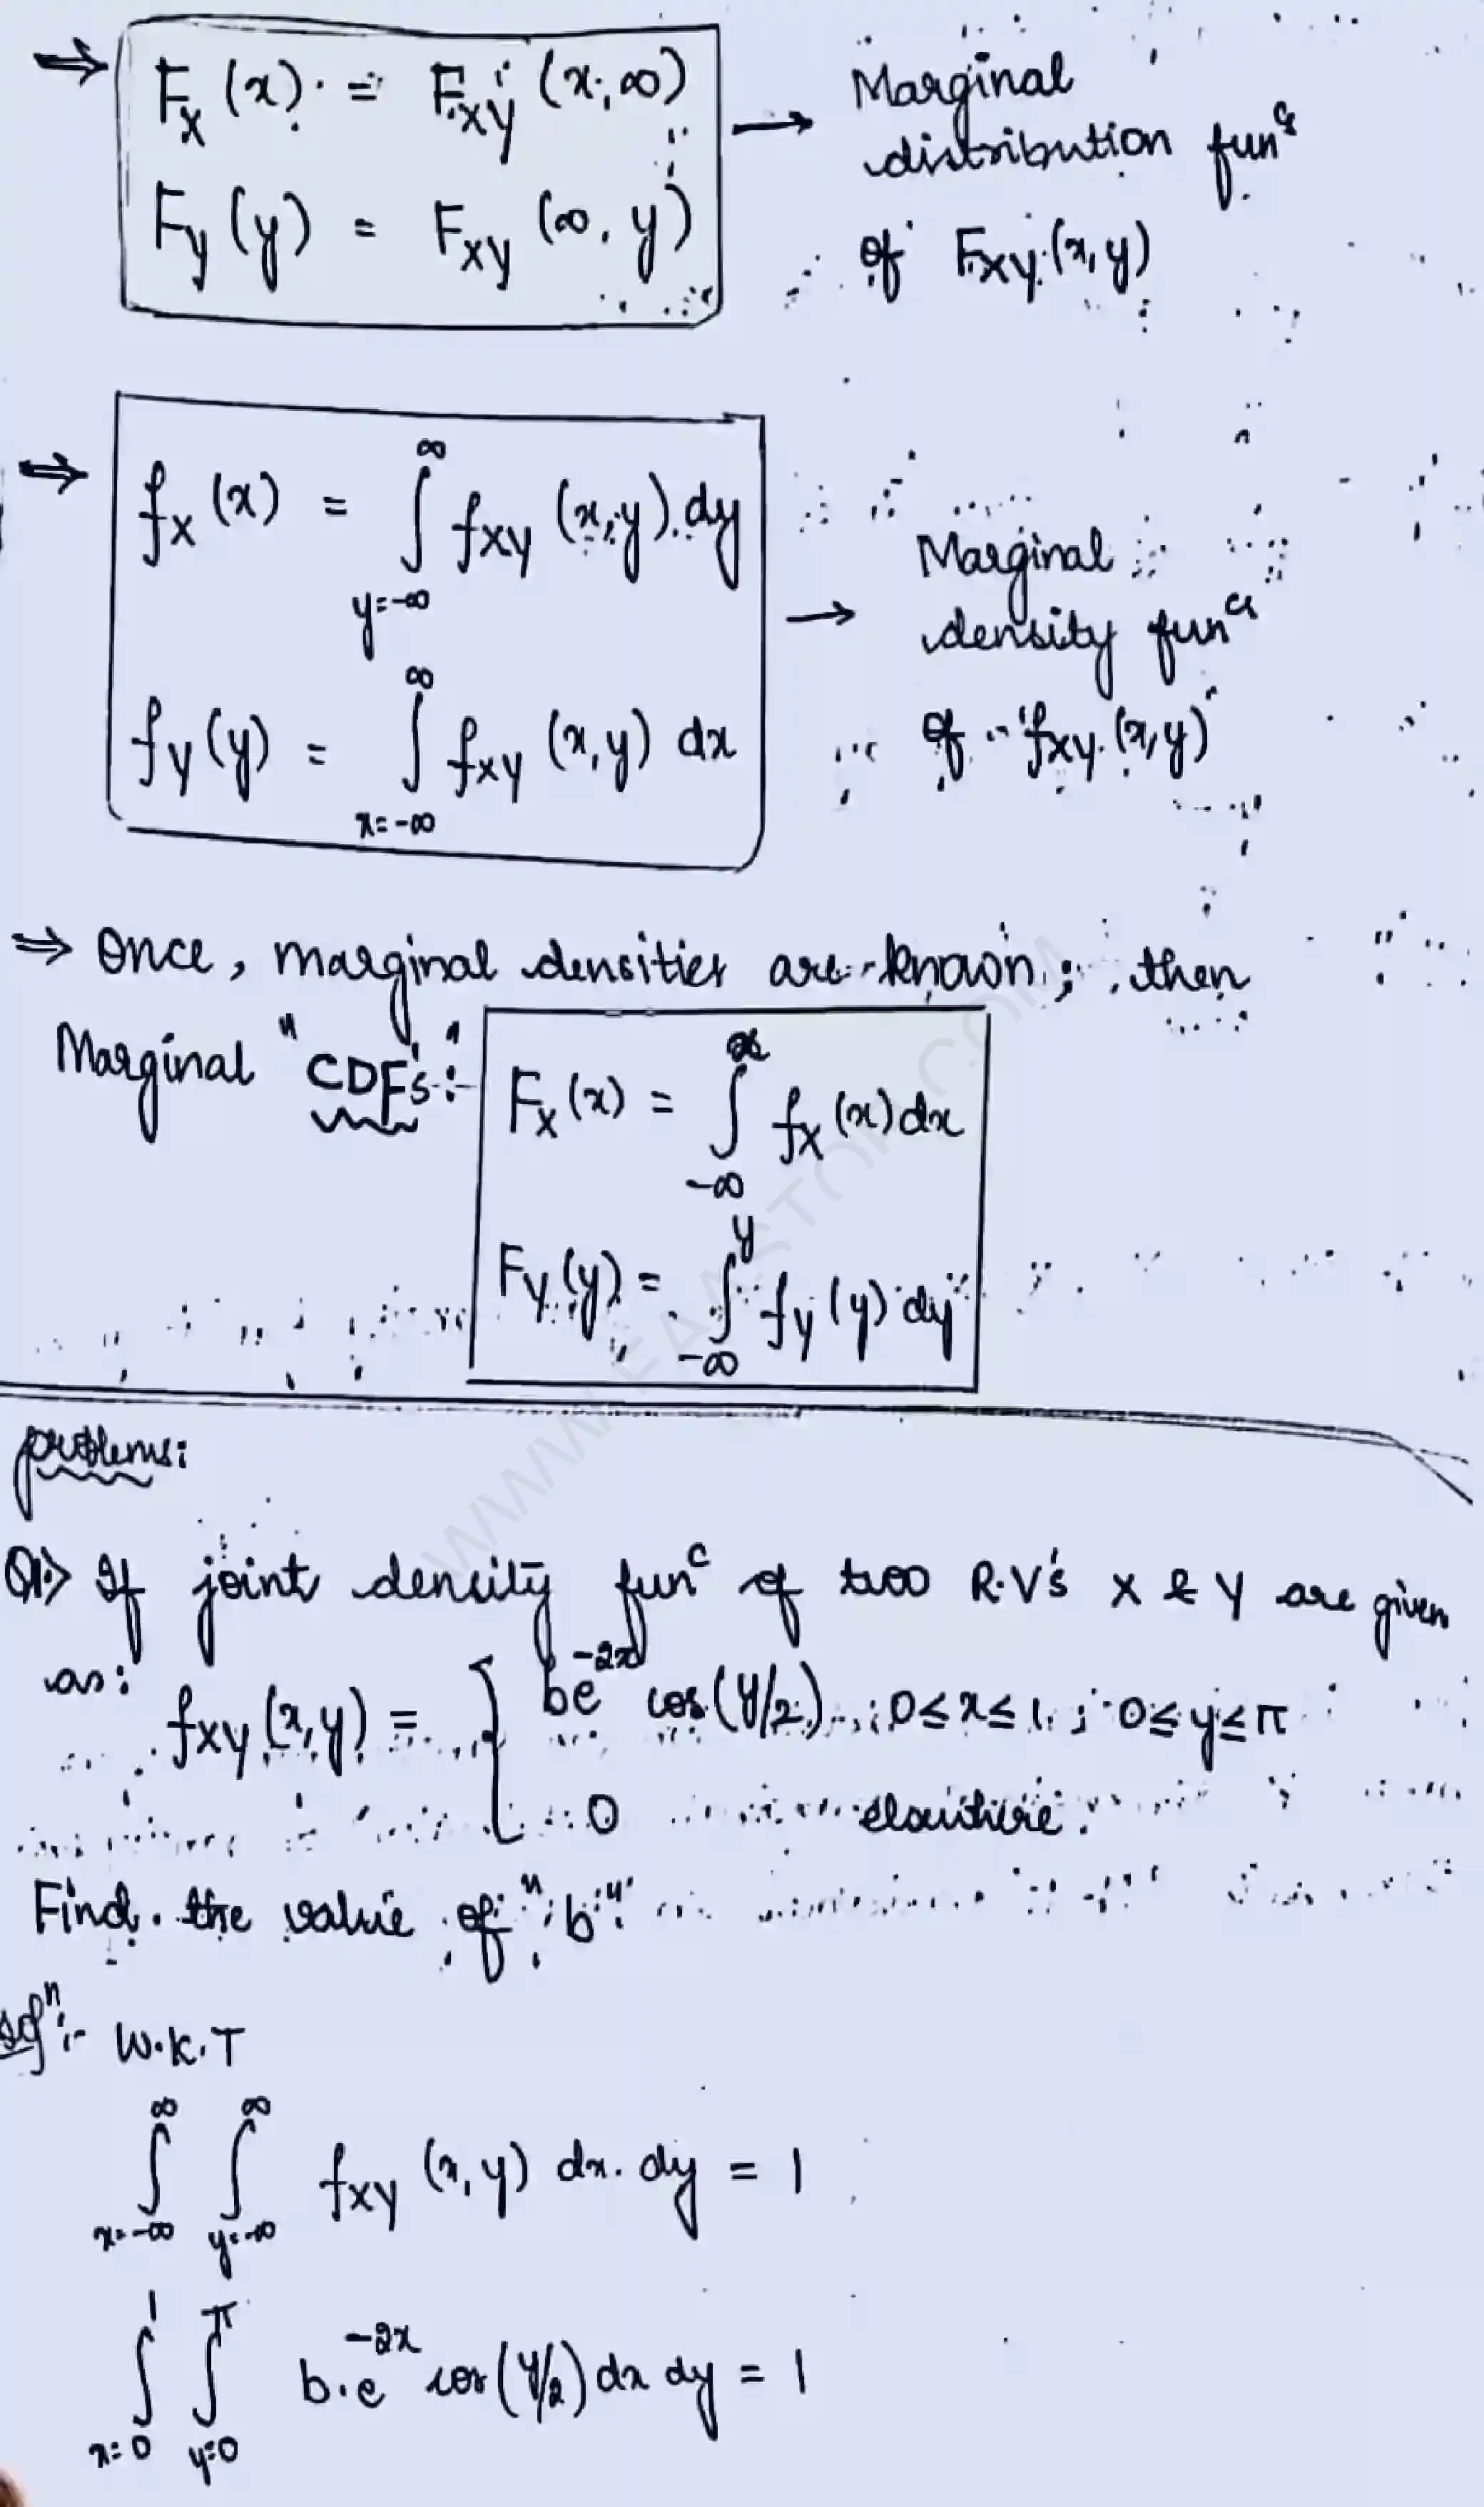 ⇒ F_X(x) = F_XY(x, ∞) → Marginal
distribution fun^cs
F_Y(y) = F_XY(∞, y) of F_XY(x,y)
⇒ f_X(x) = ∫_{y=-∞}^{∞} f_XY(x,y) dy → Marginal
density fun^cs
f_Y(y) = ∫_{x=-∞}^{∞} f_XY(x,y) dx of "f_XY(x,y)"
⇒ Once, marginal densities are known; then
Marginal "CDF's":- F_X(x) = ∫_{-∞}^{x} f_X(x) dx
F_Y(y) = ∫_{-∞}^{y} f_Y(y) dy
problems:
Q1> If joint density fun^c of two R.V's X & Y are given
as: f_XY(x,y) = { be^{-2x} cos(y/2) ; 0≤x≤1 ; 0≤y≤π
0 elsewhere.
Find the value of "b".
sol^n:- W.K.T
∫_{x=-∞}^{∞} ∫_{y=-∞}^{∞} f_XY(x,y) dx. dy = 1
∫_{x=0}^{1} ∫_{y=0}^{π} b.e^{-2x} cos(y/2) dx dy = 1